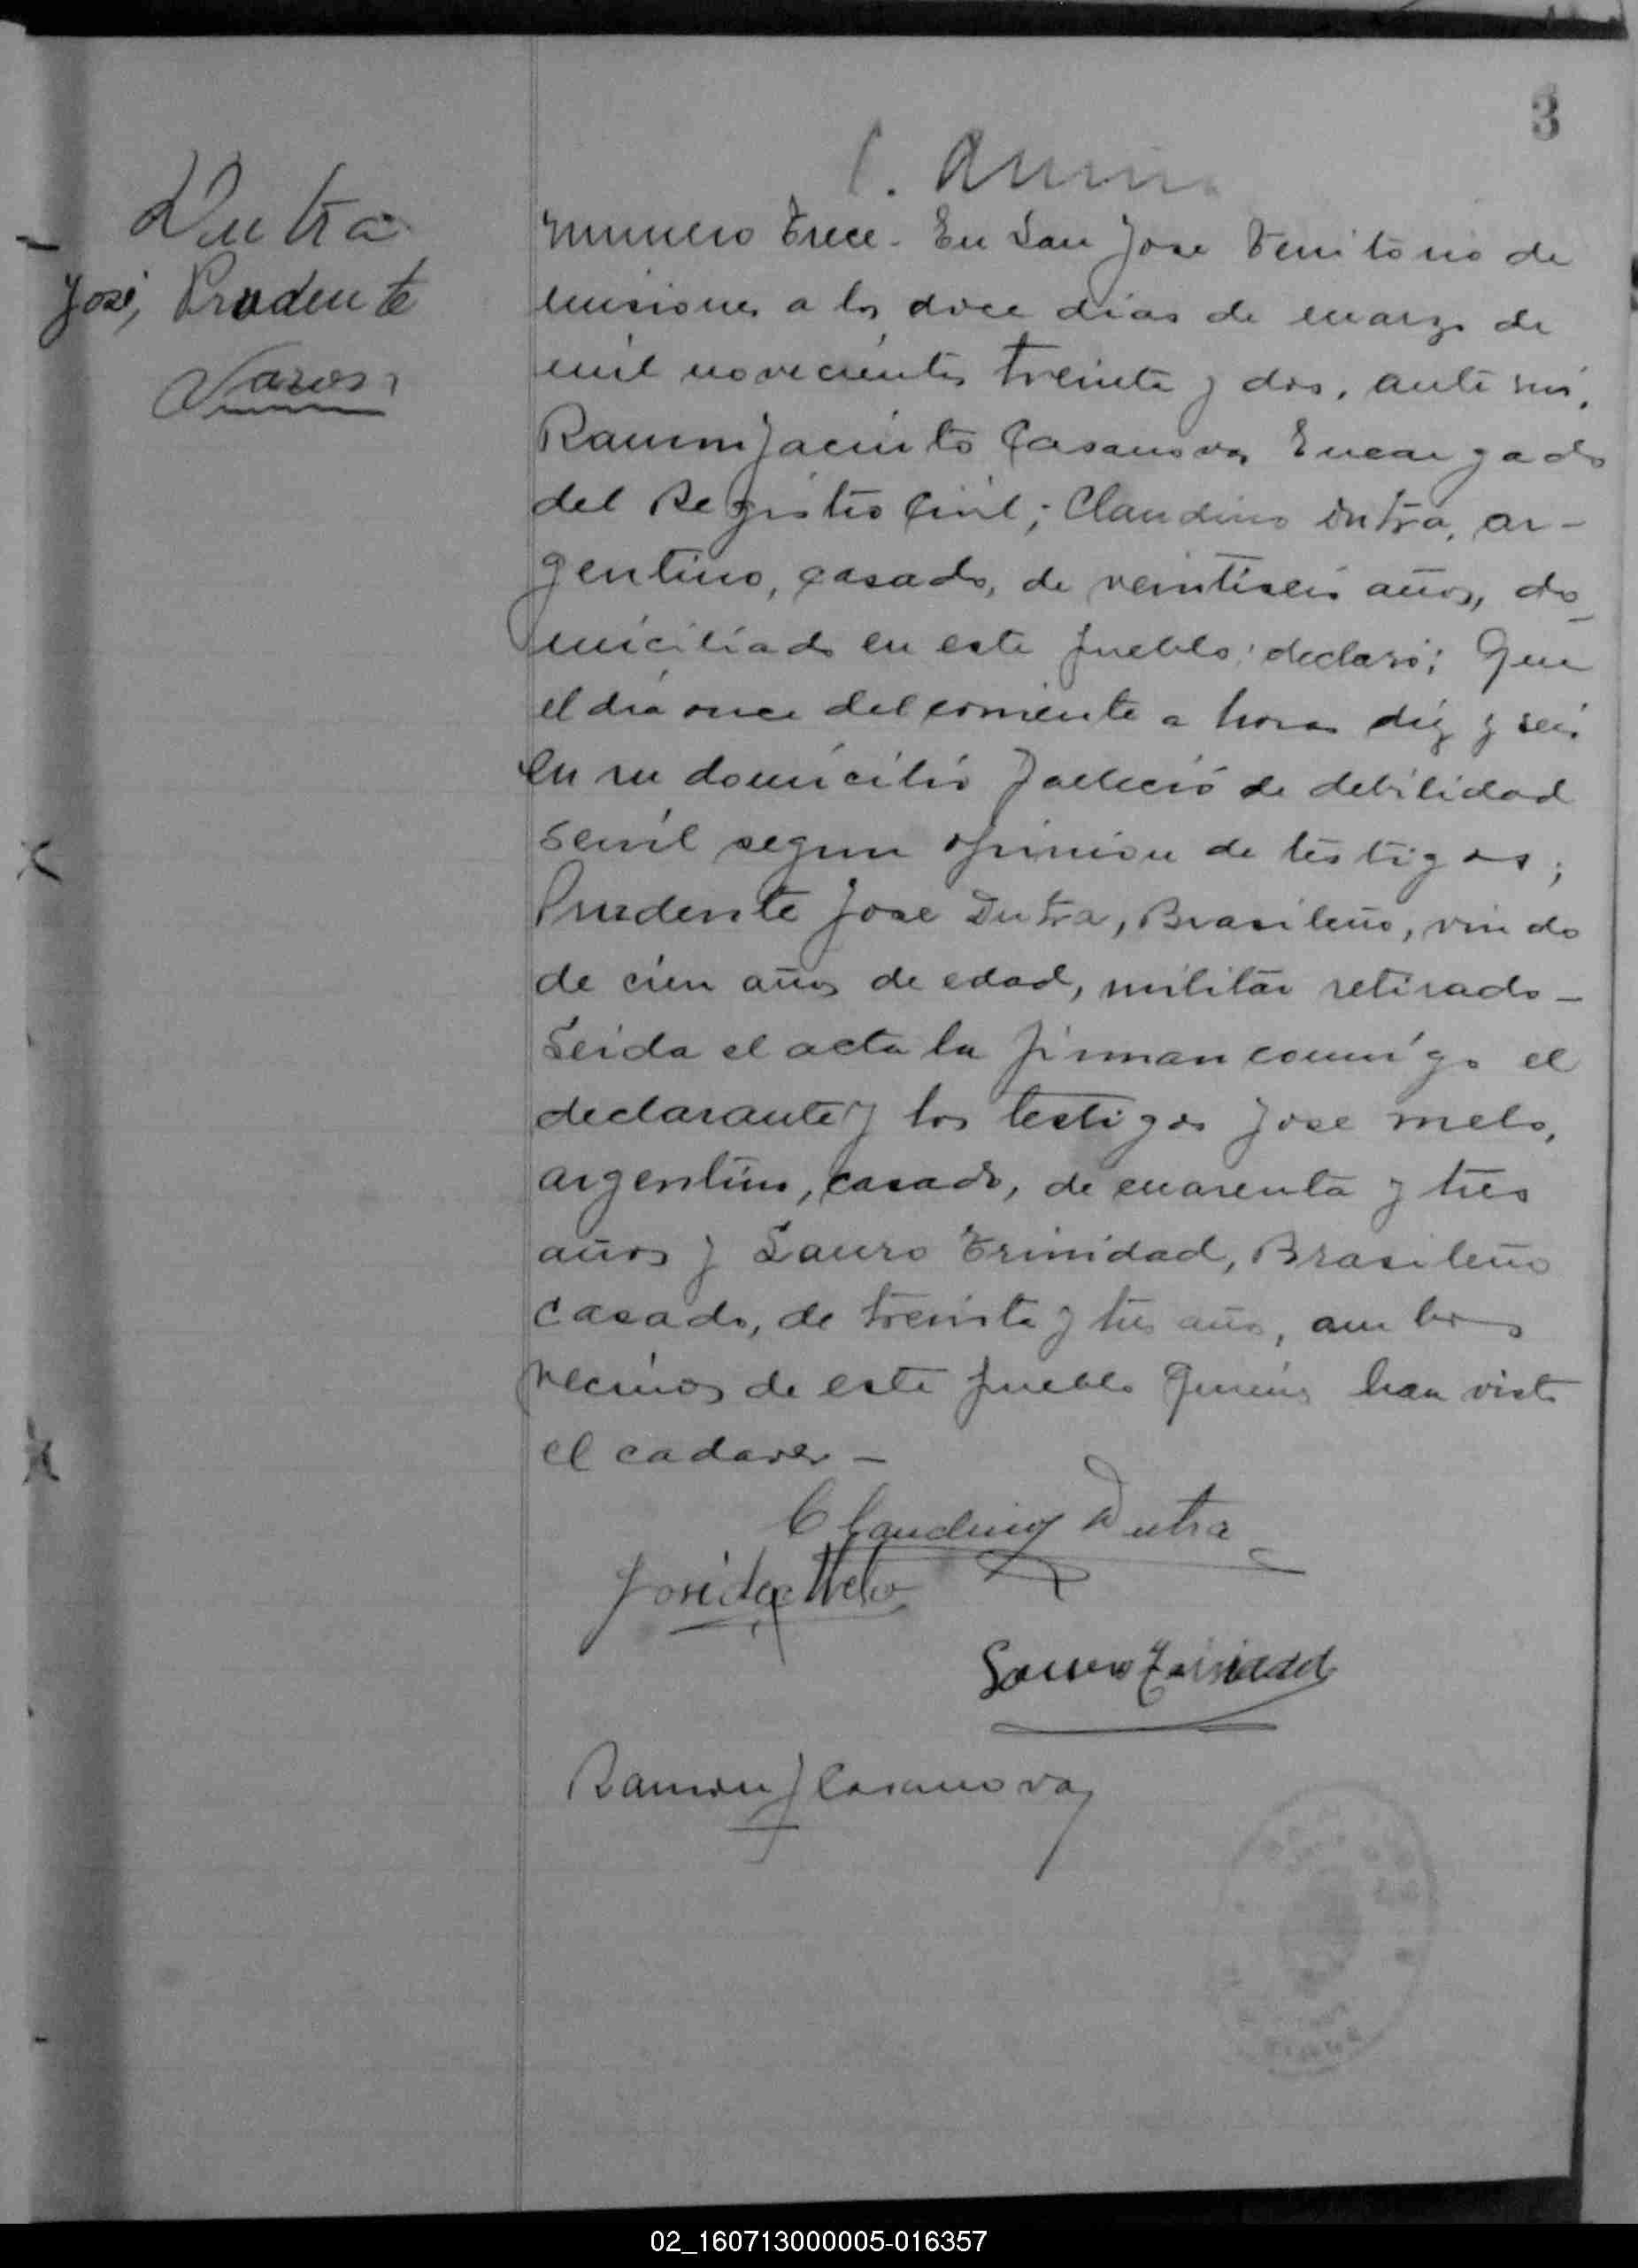 3
Dutra
José, Prudente
Varon
numero trece - En San Jose Territorio de
misiones a los doce dias de marzo de
mil novecientos treinta y dos, ante mi,
Ramon Jacinto Casanova, Encargado
del Registro Civil; Claudino Dutra, ar-
gentino, casado, de veintiseis años, do_
miciliado en este pueblo; declaró; Que
el dia once del corriente a horas diez y seis
en su domicilio falleció de debilidad
senil segun opinion de testigos;
Prudente Jose Dutra, Brasileño, viudo
de cien años de edad, militar retirado -
Leida el acta la firman conmigo el
declarante y los testigos Jose melo,
argentino, casado, de cuarenta y tres
años y Lauro Trinidad, Brasileño
casado, de treinta y tres años, ambos
vecinos de este pueblo quienes han visto
el cadaver -
Claudino Dutra
José Melo
Lauro Trinidad
Ramon J Casanova
02_160713000005-016357